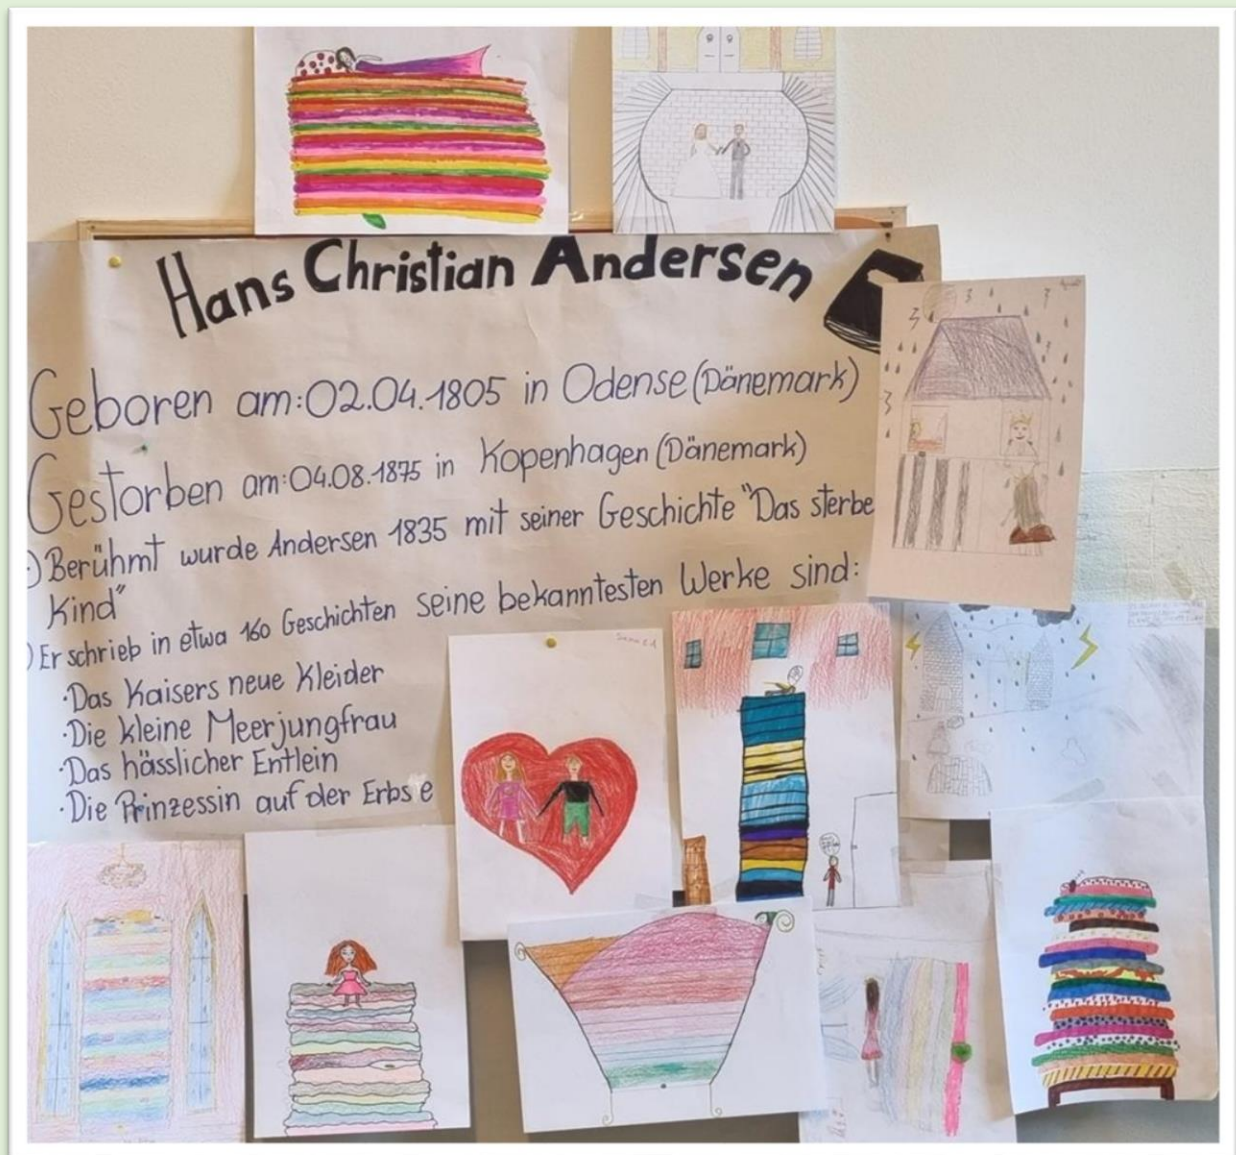 Hans Christian Andersen
Geboren am:02.04.1805 in Odense (Dänemark)
Gestorben am:04.08.1875 in Kopenhagen (Dänemark)
Berühmt wurde Andersen 1835 mit seiner Geschichte "Das sterbe
Kind"
Er schrieb in etwa 160 Geschichten seine bekanntesten Werke sind:
·Das Kaisers neue Kleider
·Die kleine Meerjungfrau
·Das hässlicher Entlein
·Die Prinzessin auf der Erbse